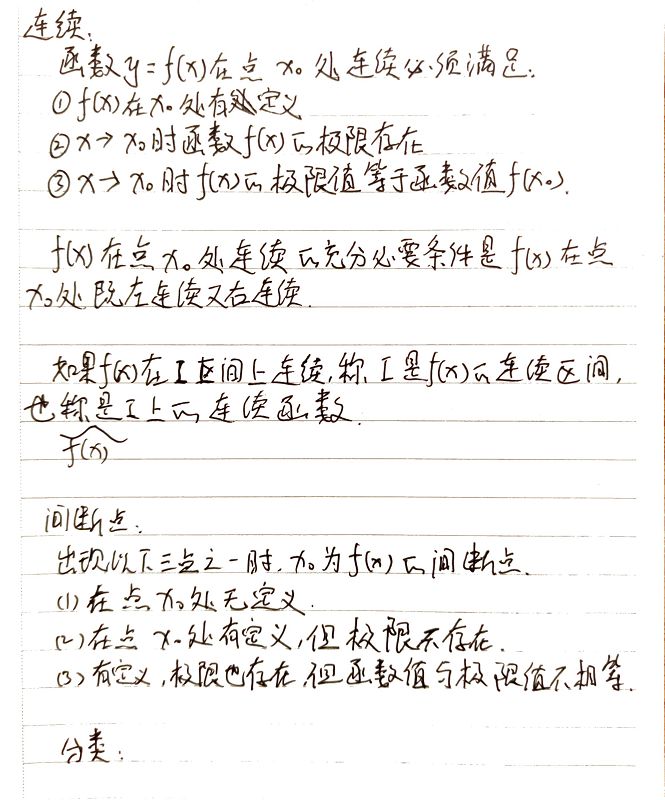 连续:
函数y=f(x)在点x₀处连续必须满足:
①f(x)在x₀处有定义
②x→x₀时函数f(x)的极限存在
③x→x₀时f(x)的极限值等于函数值f(x₀).
f(x)在点x₀处连续的充分必要条件是f(x)在点
x₀处既左连续又右连续.
如果f(x)在I区间上连续,称I是f(x)的连续区间,
也称是I上的连续函数.
f(x)
间断点:
出现以下三点之一时,x₀为f(x)的间断点.
(1)在点x₀处无定义.
(2)在点x₀处有定义,但极限不存在.
(3)有定义,极限也存在,但函数值与极限值不相等.
分类: